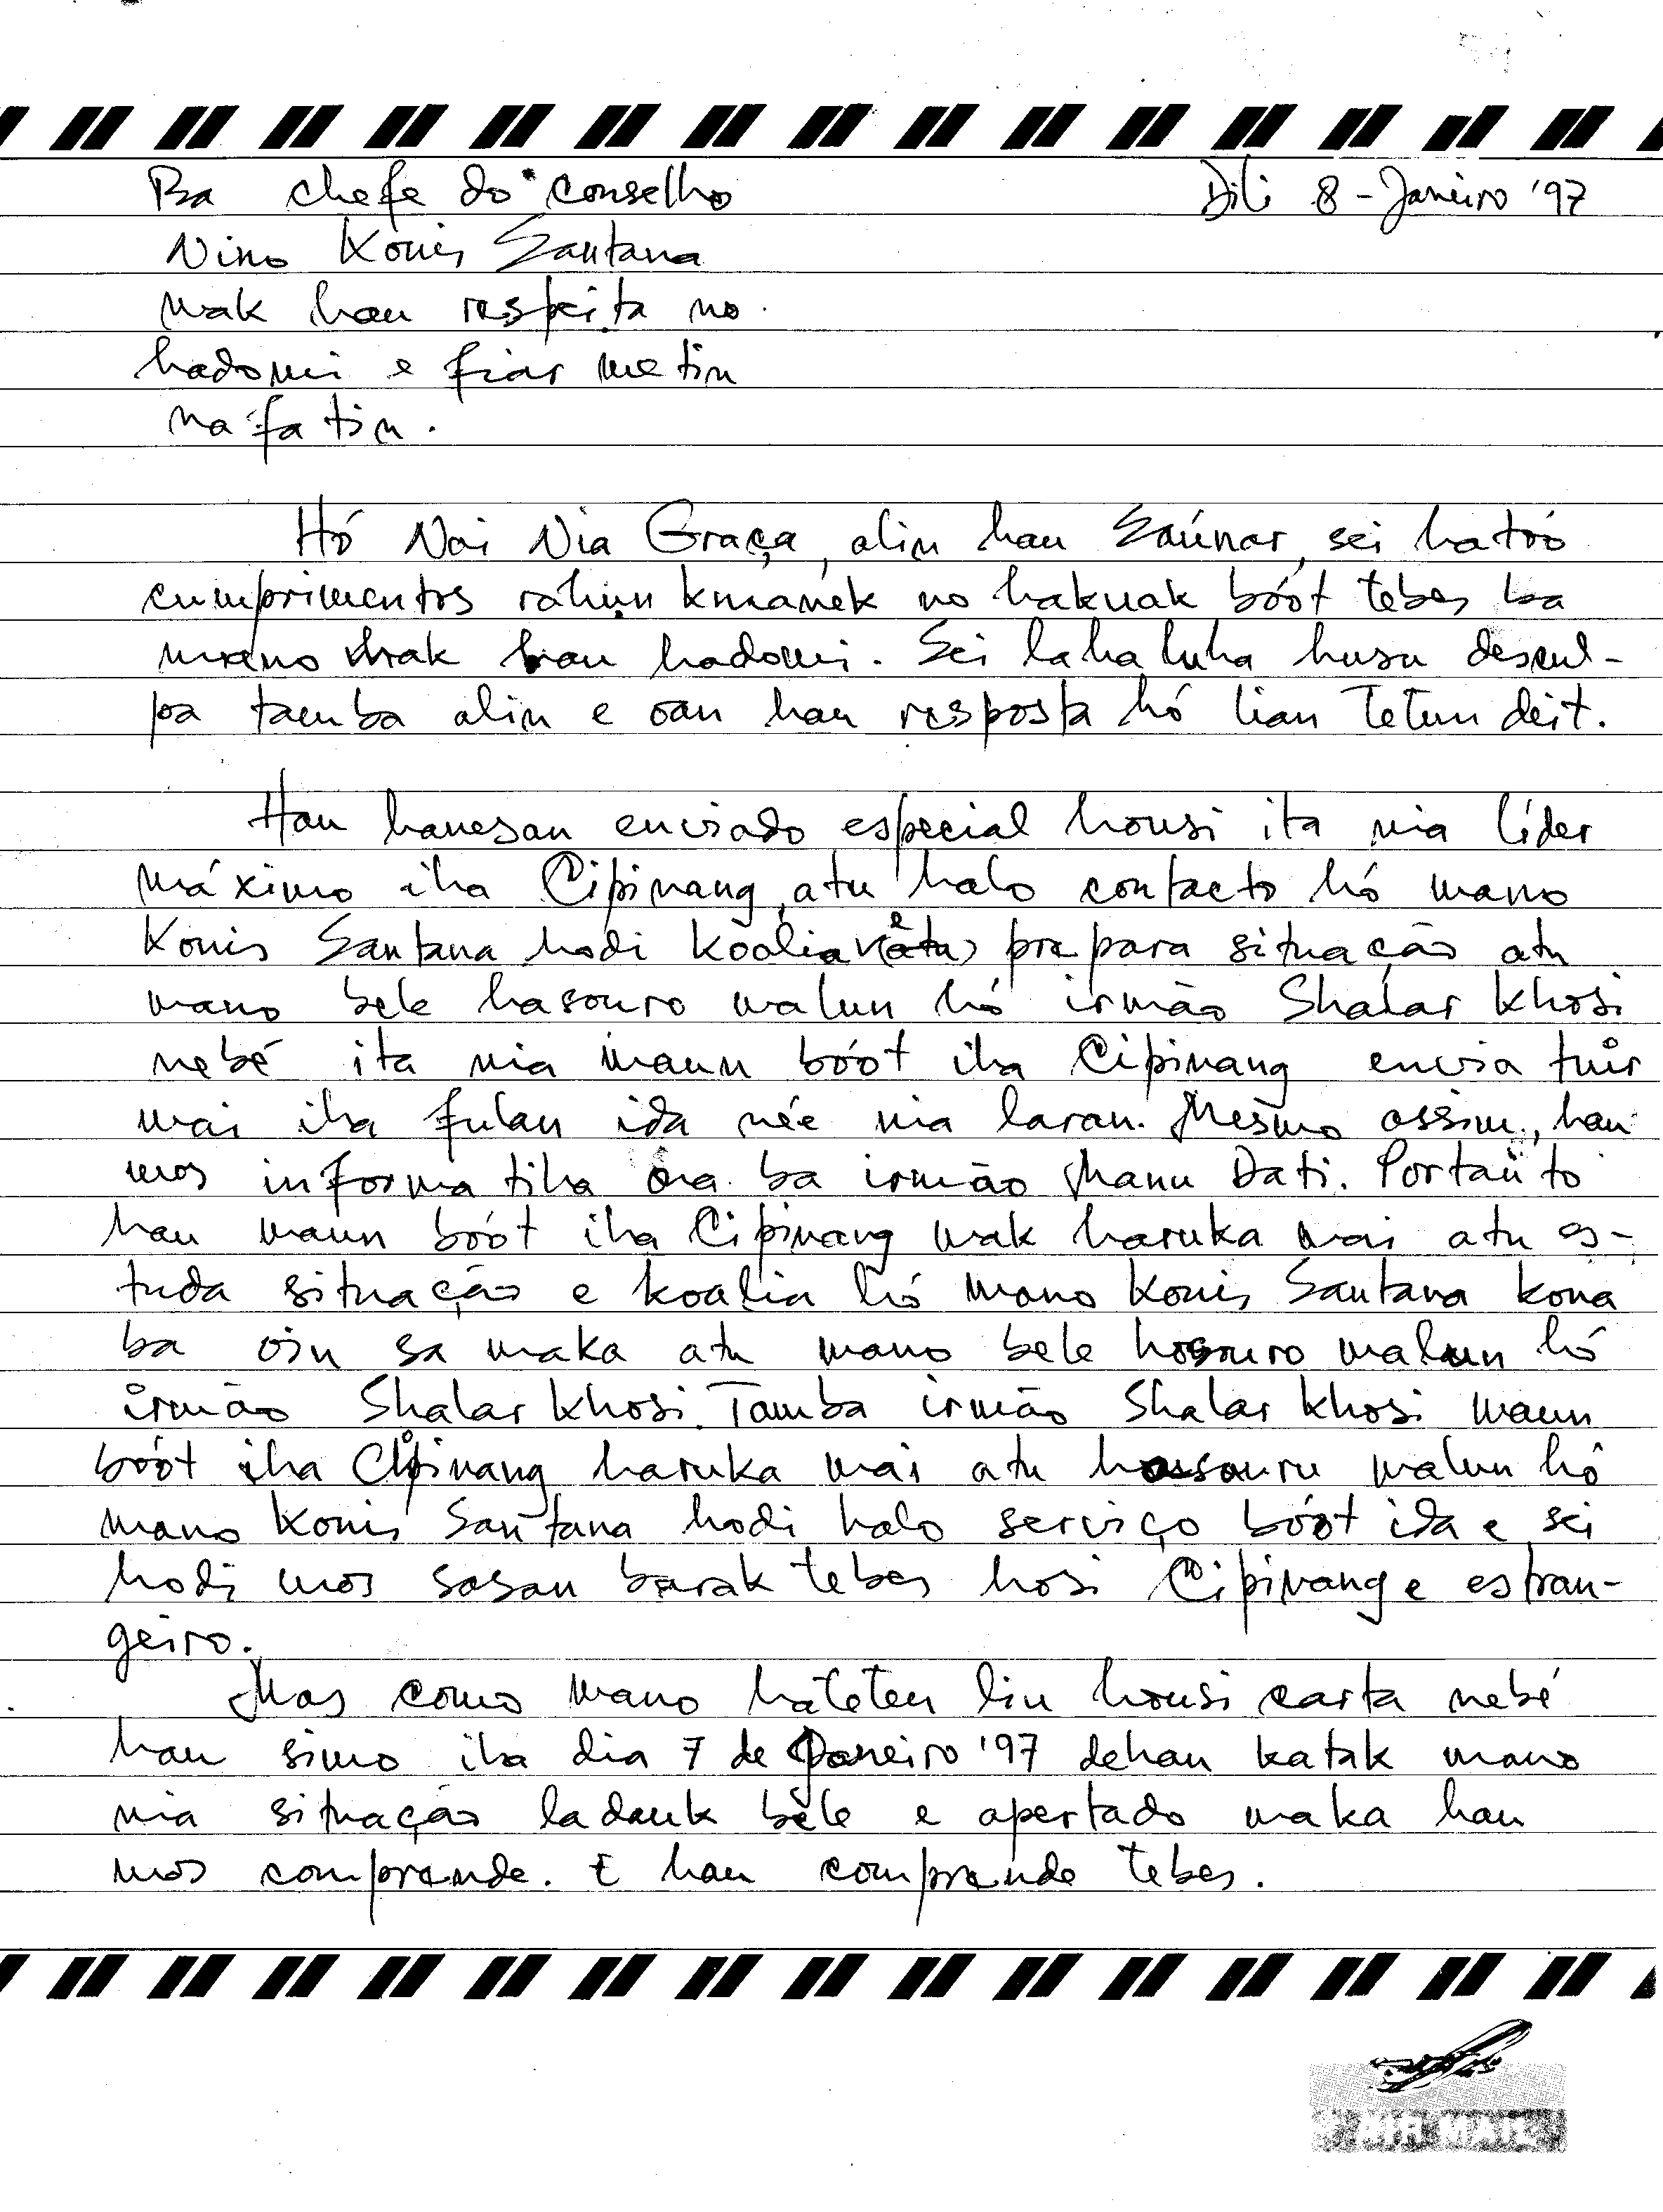 Ba chefe do conselho Dili 8 - Janeiro '97
Nino Konis Santana
mak hau respeita no
hadomi e fiar metin
nafatin.
Hó Nai Nia Graça, alin hau Saúnar, sei hatóo
cumprimentos rahun kmanek no hakuak bóot tebes ba
mano mak hau hadomi. Sei la haluha husu descul-
pa tamba alin e oan hau resposta hó lian Tetun deit.
Hau hanesan enviado especial housi ita nia líder
máximo iha Cipinang, atu halo contacto hó mano
Konis Santana hodi koalia prepara situação atu
mano bele hasouro malun hó irmão Shalar Khosi
nebé ita nia maun bóot iha Cipinang envia tuir
mai iha fulan ida née nia laran. Mesmo assim, hau
mos informa tiha ona ba irmão Manu Dati. Portanto
hau maun bóot iha Cipinang mak haruka mai atu es-
tuda situação e koalia hó mano Konis Santana kona
ba oin sa maka atu mano bele hosouro malun hó
irmão Shalar Khosi. Tamba irmão Shalar Khosi maun
bóot iha Cipinang haruka mai atu hasouru malun hó
mano Konis Santana hodi halo serviço bóot ida e sei
hodi mos sasan barak tebes hosi Cipinang e estran-
geiro.
Mas como mano hateten liu housi carta nebé
hau simo iha dia 7 de Janeiro '97 dehan katak mano
nia situação ladauk bele e apertado maka hau
mos comprende. E hau comprende tebes.
AIR MAIL